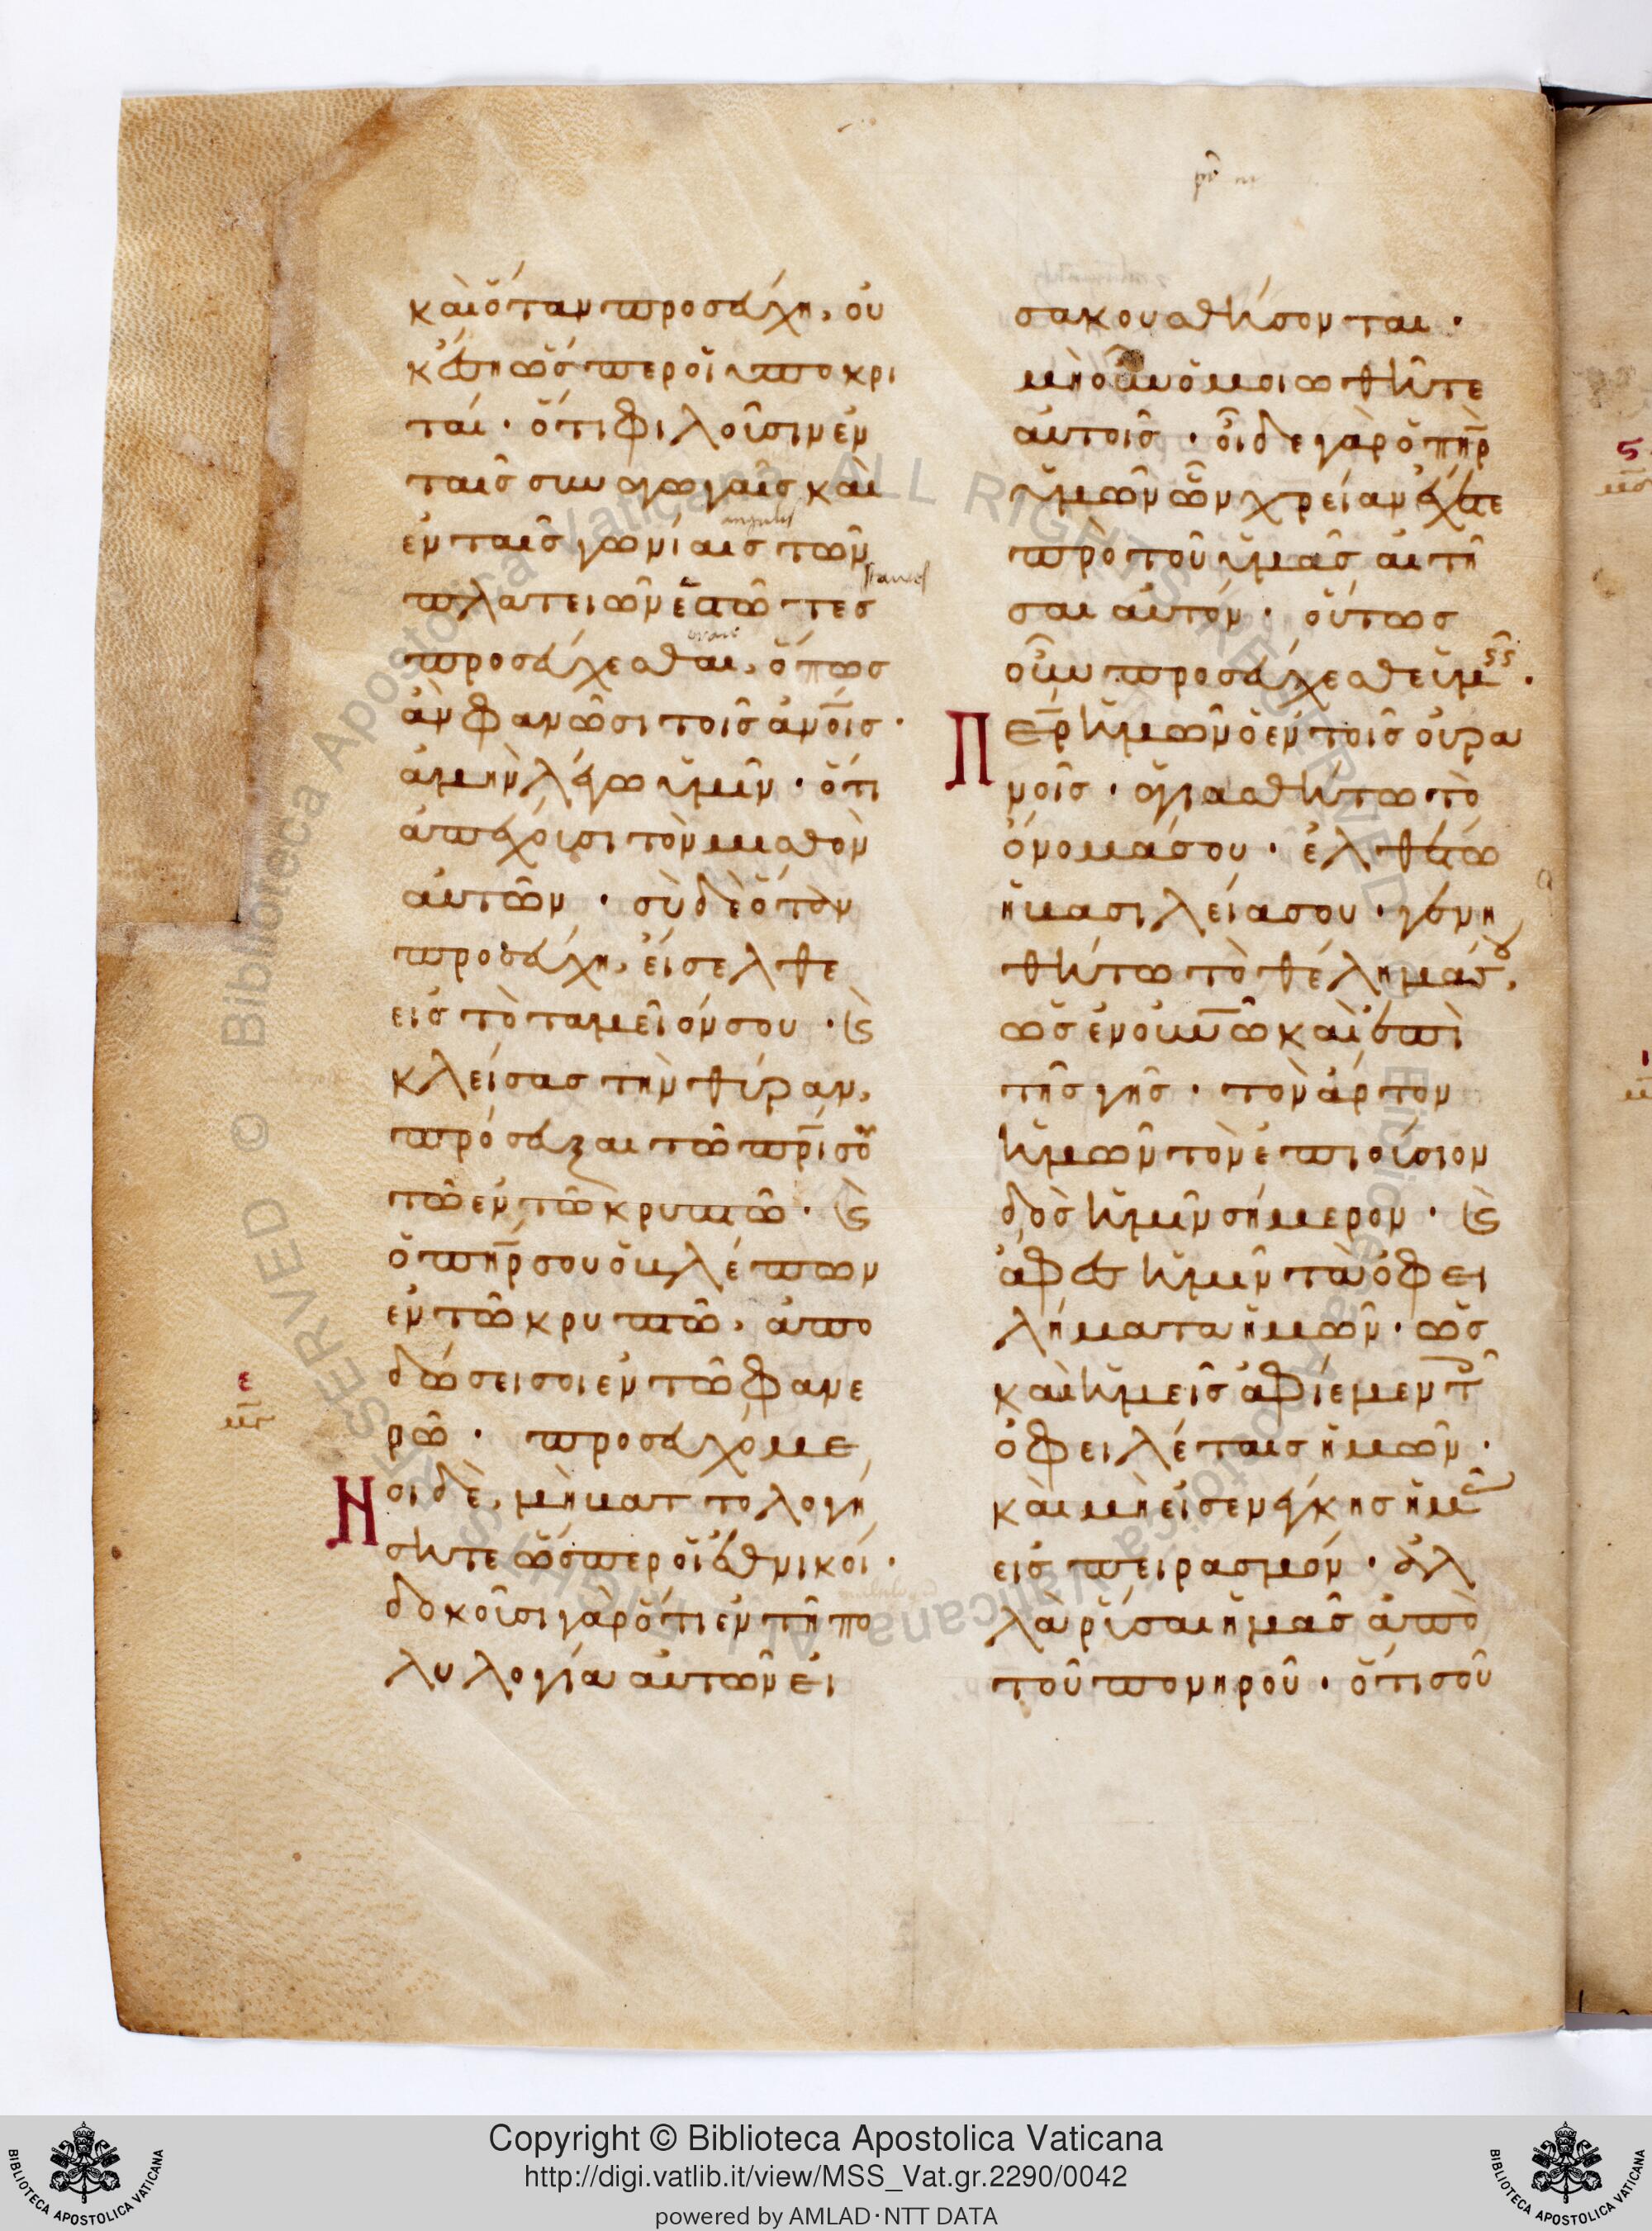 καὶ ὅταν προσεύχη, οὐ
κ ἔση ὥσπερ οἱ ὑποκρι
ταί · ὅτι φιλοῦσιν ἐν
ταῖς συναγωγαῖς καὶ
ἐν ταῖς γωνίαις τῶν
πλατειῶν ἑστῶτες
προσεύχεσθαι, ὅπως
ἂν φανῶσι τοῖς ἀν̅οις ·
ἀμὴν λέγω ὑμῖν · ὅτι
ἀπέχουσι τὸν μισθὸν
αὐτῶν · σὺ δὲ ὅταν
προσεύχη, εἴσελθε
εἰς τὸ ταμεῖόν σου · ϗ
κλείσας τὴν θύραν,
πρόσευξαι τῶ π̅ρι σου
τῶ ἐν τῶ κρυπτῶ · ϗ
ὁ π̅η̅ρ σου ὁ βλέπων
ἐν τῶ κρυπτῶ, ἀπο
δώσει σοι ἐν τῶ φανε
ρῶ · προσευχόμε
Νοι δὲ, μὴ βαττολογή
σητε ὥσπερ οἱ ἐθνικοί ·
δοκοῦσι γὰρ ὅτι ἐν τῆ πο
λυλογία αὐτῶν εἰ
σακουσθήσονται ·
μὴ οὖν ὁμοιωθῆτε
αὐτοῖς · οἶδε γὰρ ὁ π̅η̅ρ
ὑμῶν ὧν χρείαν ἔχετε
πρὸ τοῦ ὑμᾶς αἰτῆ
σαι αὐτόν · οὕτως
οὖν προσεύχεσθε ὑμεῖς ·
Π̅ε̅ρ ἡμῶν ὁ ἐν τοῖς οὐρα
νοῖς · ἁγιασθήτω τὸ
ὄνομά σου · ἐλθέτω
ἡ βασιλεία σου · γενη
θήτω τὸ θέλημά σου,
ὡς ἐν οὐν̅ω καὶ ἐπὶ
τῆς γῆς · τὸν ἄρτον
ἡμῶν τὸν ἐπιούσιον
δὸς ἡμῖν σήμερον · ϗ
ἄφες ἡμῖν τὰ ὀφει
λήματα ἡμῶν · ὡς
καὶ ἡμεῖς ἀφίεμεν τοῖς
ὀφειλέταις ἡμῶν ·
καὶ μὴ εἰσενέγκης ἡμᾶς
εἰς πειρασμόν · ἀλ
λὰ ῥῦσαι ἡμᾶς ἀπὸ
τοῦ πονηροῦ · ὅτι σοῦ
Copyright © Biblioteca Apostolica Vaticana
http://digi.vatlib.it/view/MSS_Vat.gr.2290/0042
powered by AMLAD·NTT DATA